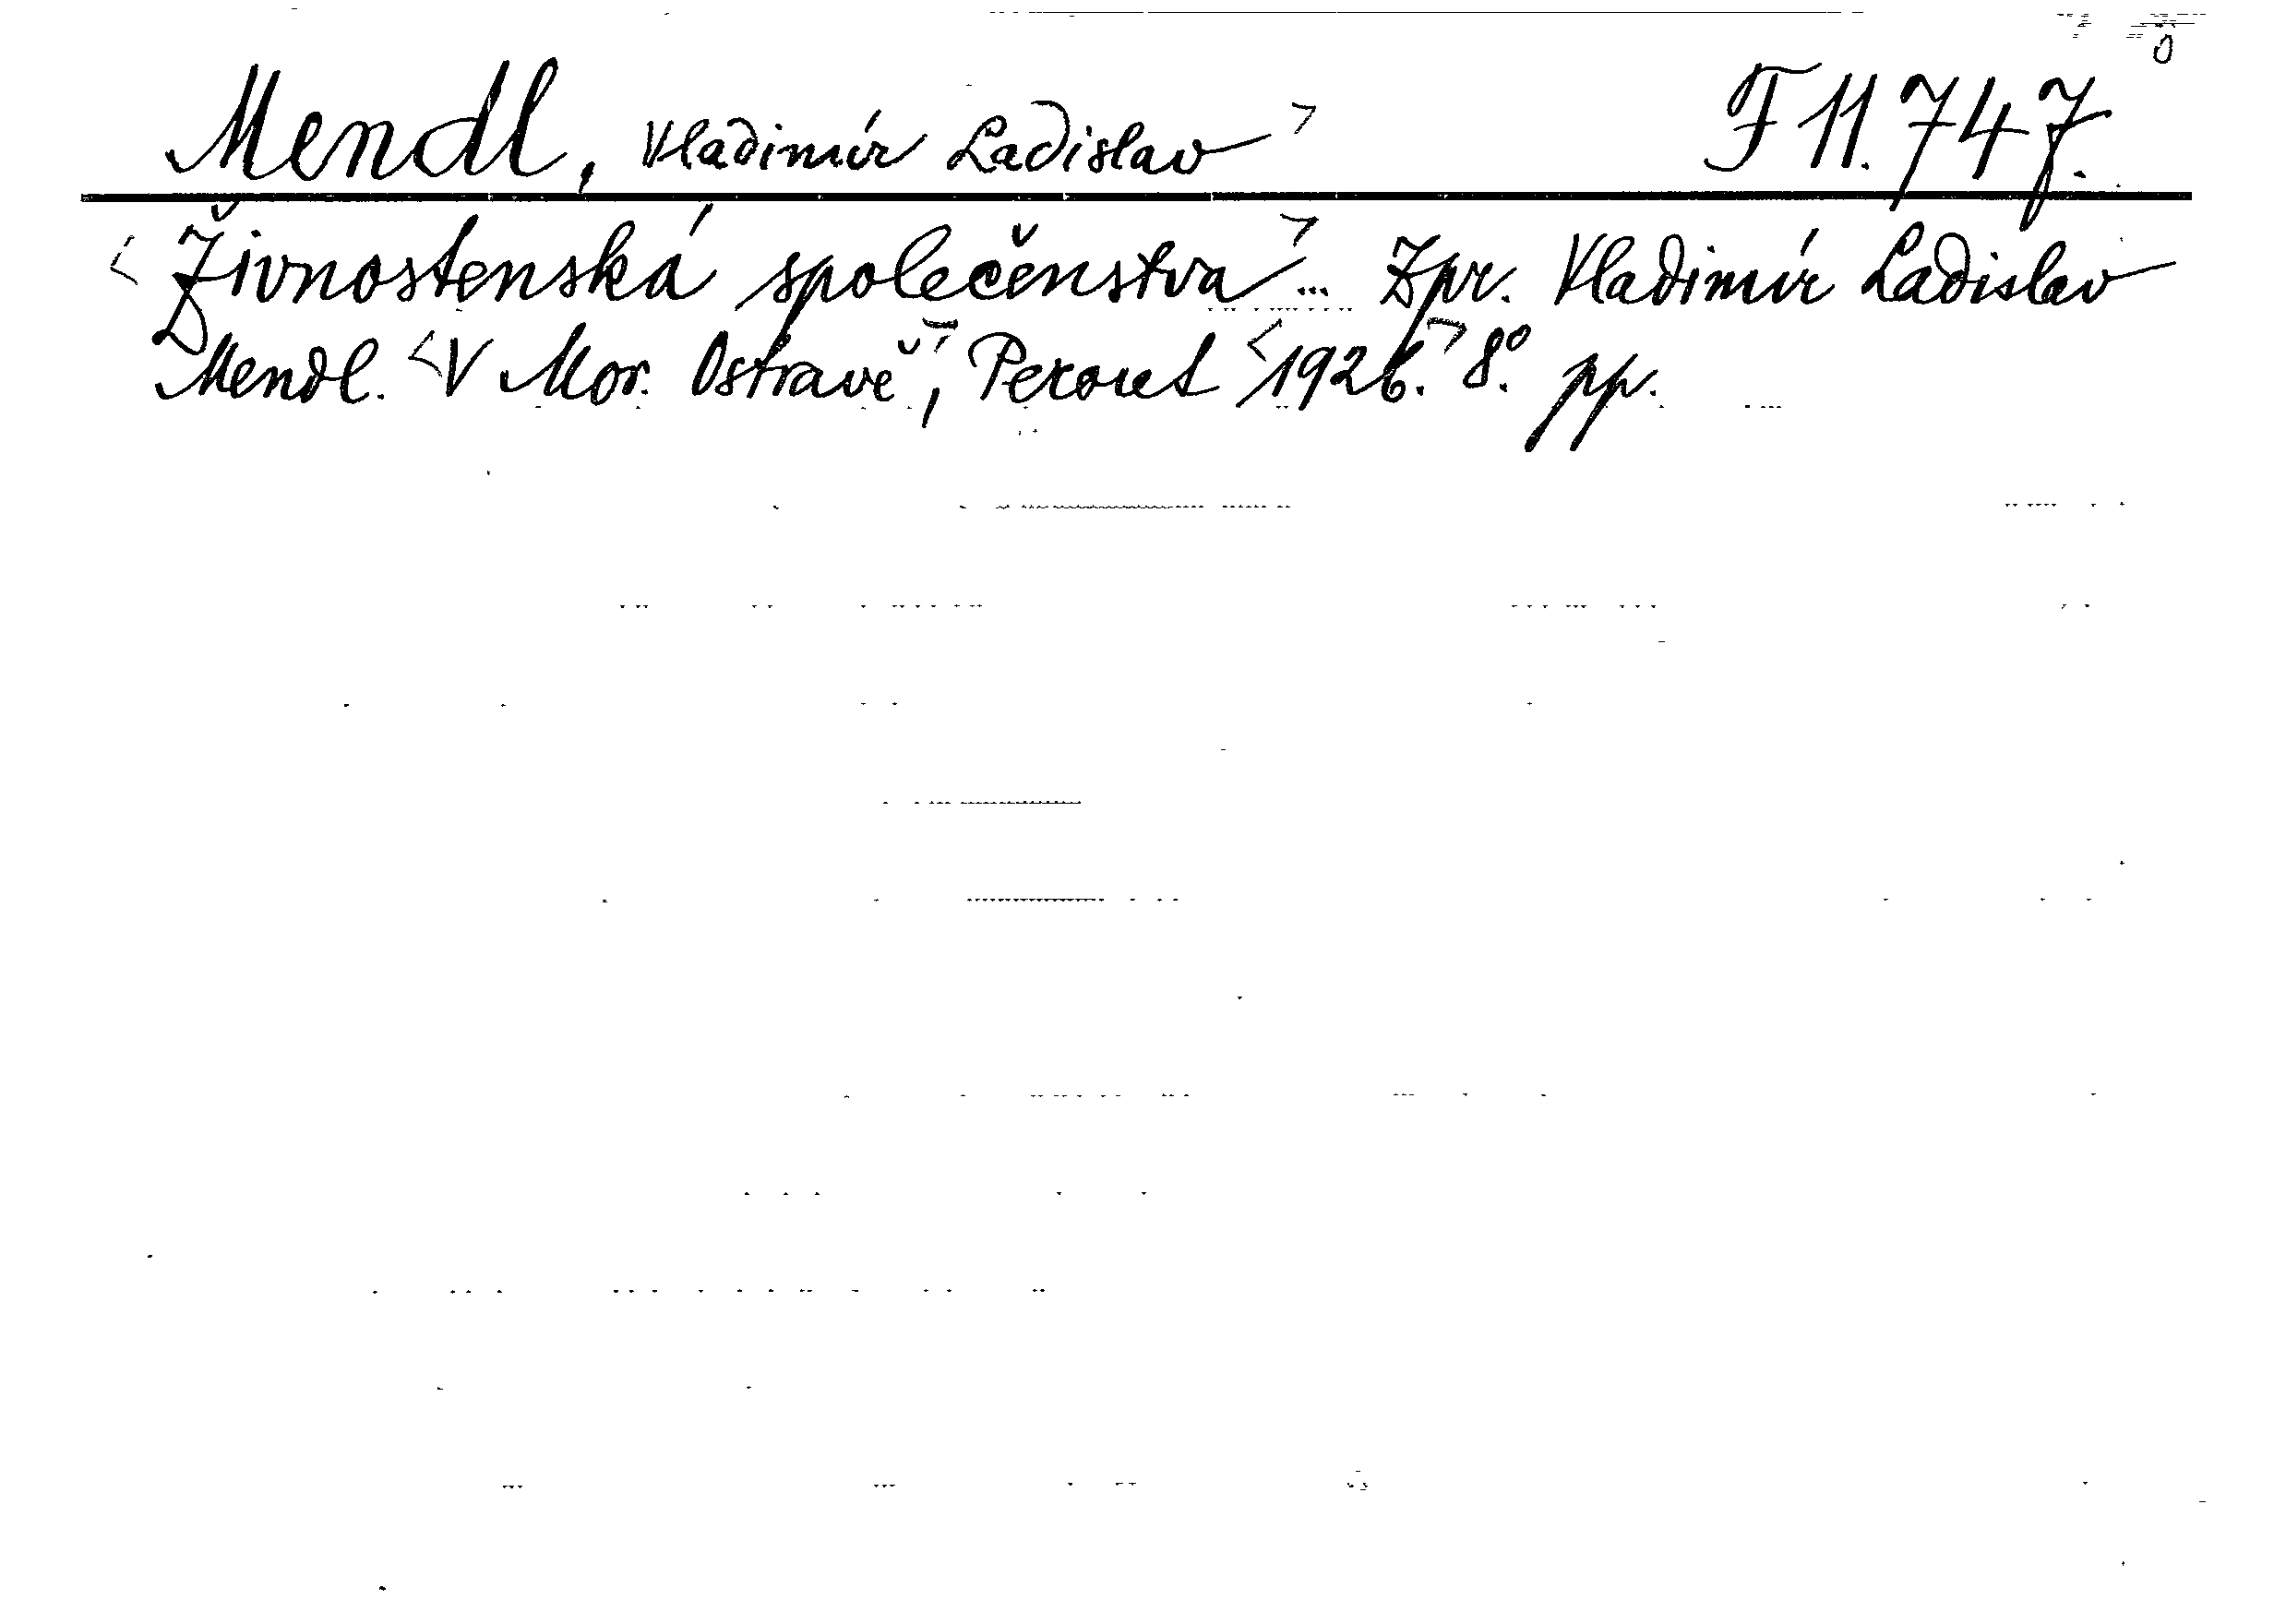 Mendl, Vladimír Ladislav> F 11.747.
<Živnostenská společenstva>... Zpr. Vladimír Ladislav
Mendl. <V Mor. Ostravě>, Perout <1926.> 8°. pp.